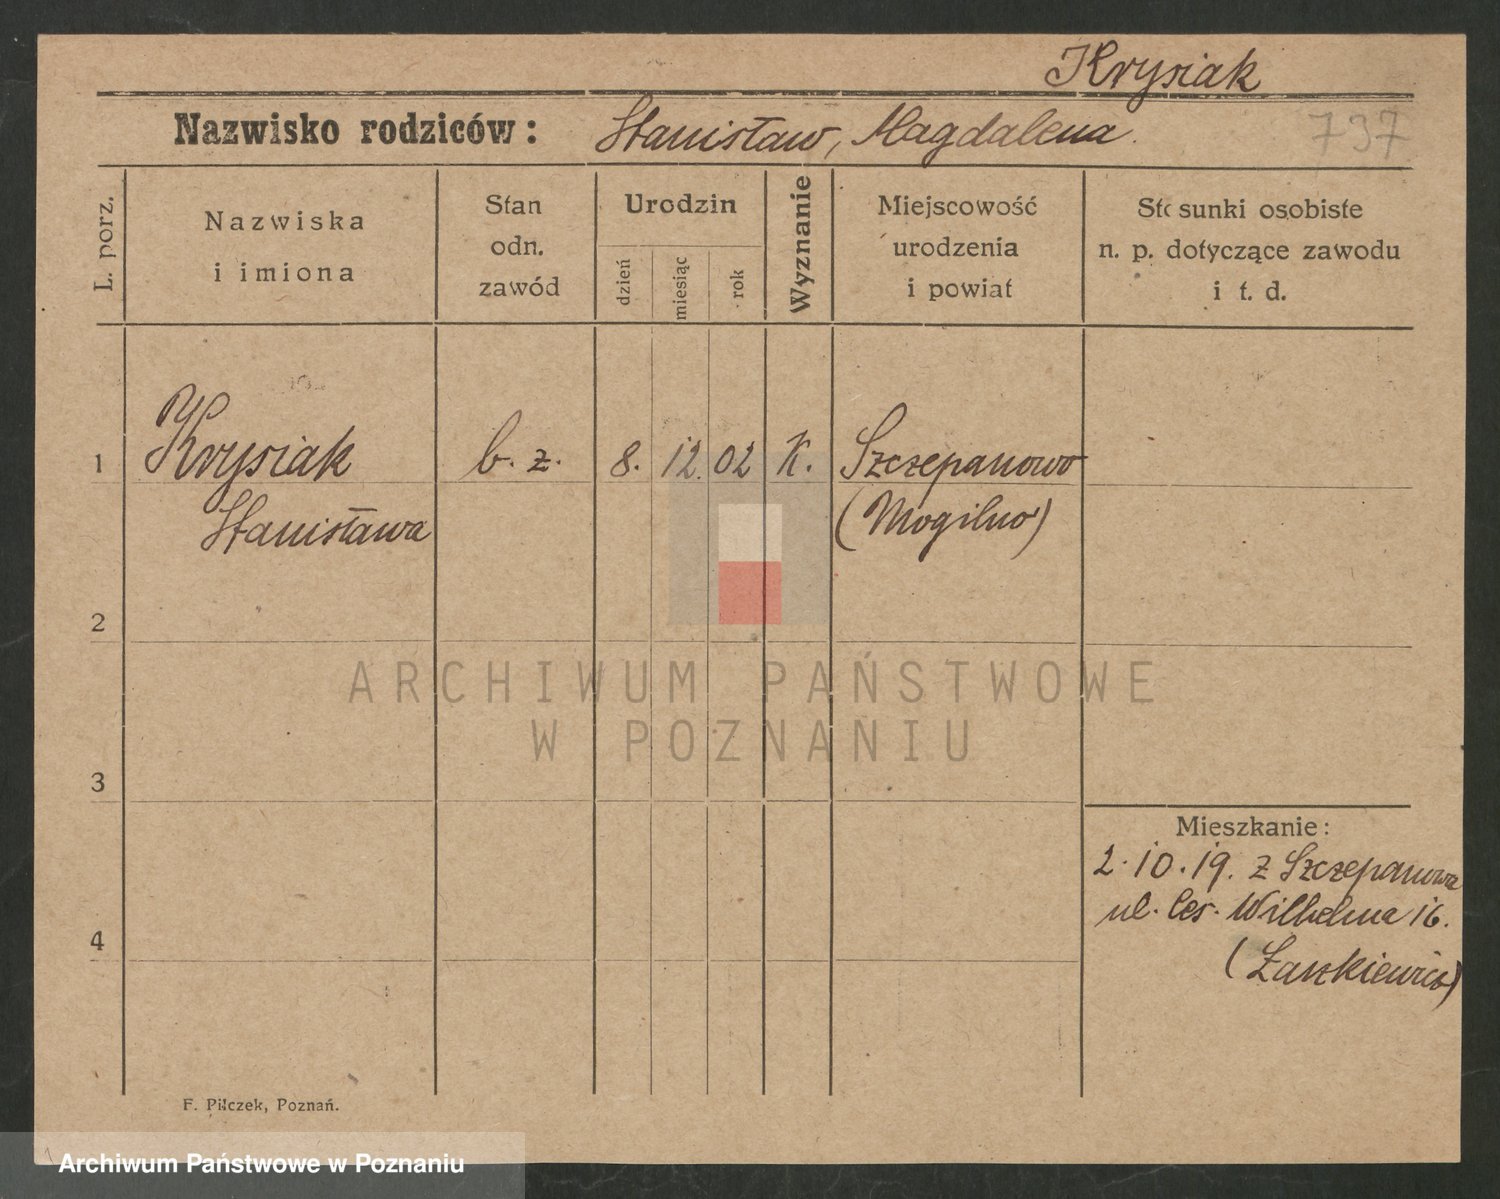 Krysiak
Nazwisko rodziców: Stanisław, Magdalena.
737
L. porz.
Nazwiska
i imiona
Stan
odn.
zawód
Urodzin
dzień
miesiąc
rok
Wyznanie
Miejscowość
urodzenia
i powiat
Stosunki osobiste
n. p. dotyczące zawodu
i t. d.
1 Krysiak b. z. 8. 12. 02 K. Szczepanowo
Stanisława (Mogilno)
2
3
4
Mieszkanie:
2.10.19. z Szczepanowa
ul. Ces. Wilhelma 16.
(Łaszkiewicz)
F. Pilczek, Poznań.
ARCHIWUM PAŃSTWOWE
W POZNANIU
Archiwum Państwowe w Poznaniu